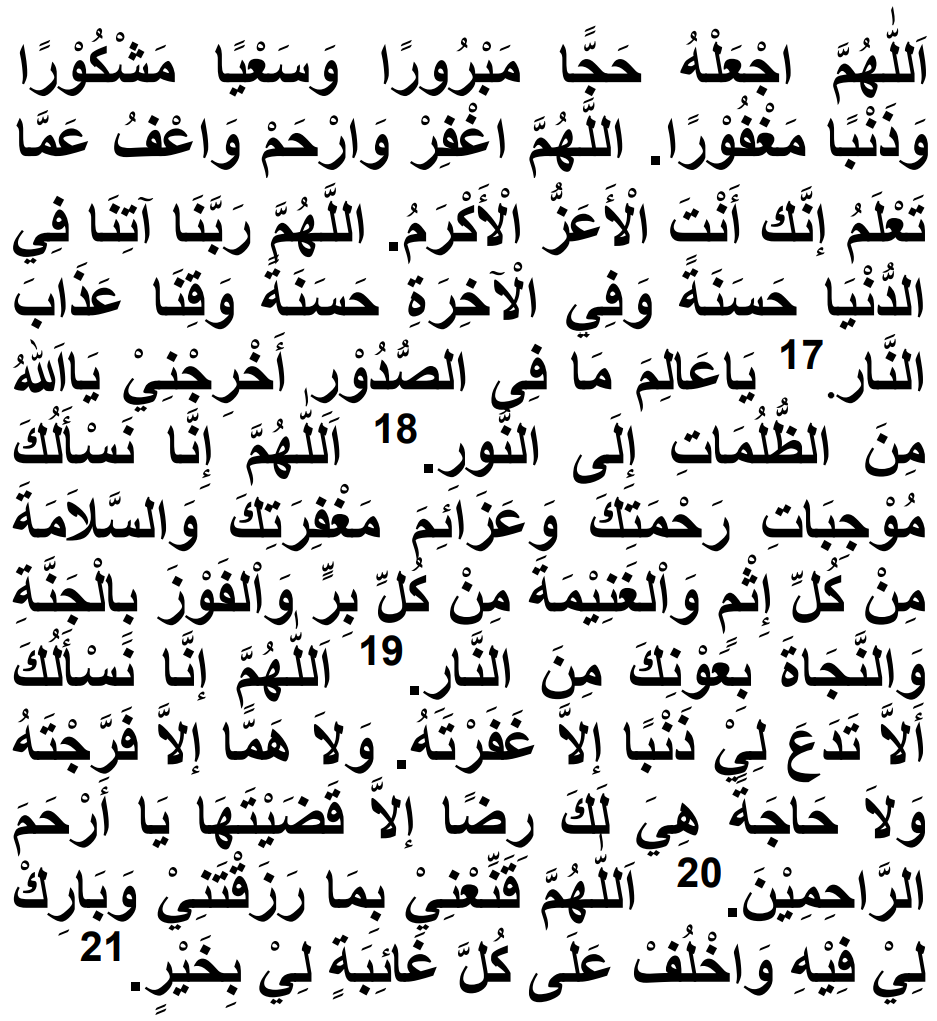 اَللّٰهُمَّ اجْعَلْهُ حَجًّا مَبْرُورًا وَسَعْيًا مَشْكُوْرًا
وَذَنْبًا مَغْفُوْرًا. اللَّهُمَّ اغْفِرْ وَارْحَمْ وَاعْفُ عَمَّا
تَعْلَمُ إنَّك أَنْتَ الْأَعَزُّ الْأَكْرَمُ. اللَّهُمَّ رَبَّنَا آتِنَا فِي
الدُّنْيَا حَسَنَةً وَفِي الْآخِرَةِ حَسَنَةً وَقِنَا عَذَابَ
النَّار.17 يَاعَالِمَ مَا فِى الصُّدُوْرِ أَخْرِجْنِيْ يَااَللهُ
مِنَ الظُّلُمَاتِ إِلَى النُّورِ.18 اَللّٰهُمَّ إِنَّا نَسْأَلُكَ
مُوْجِبَاتِ رَحْمَتِكَ وَعَزَائِمَ مَغْفِرَتِكَ وَالسَّلاَمَةَ
مِنْ كُلِّ إِثْمٍ وَاْلغَنِيْمَةَ مِنْ كُلِّ بِرٍّ وَاْلفَوْزَ بِالْجَنَّةِ
وَالنَّجَاةَ بِعَوْنِكَ مِنَ النَّارِ.19 اَللّٰهُمَّ إِنَّا نَسْأَلُكَ
أَلاَّ تَدَعَ لِيْ ذَنْبًا إلاَّ غَفَرْتَهُ. وَلاَ هَمًّا إلاَّ فَرَّجْتَهُ
وَلاَ حَاجَةً هِيَ لَكَ رِضًا إلاَّ قَضَيْتَهَا يَا أَرْحَمَ
الرَّاحِمِيْنَ.20 اَللّٰهُمَّ قَنِّعْنِيْ بِمَا رَزَقْتَنِيْ وَبَارِكْ
لِيْ فِيْهِ وَاخْلُفْ عَلَى كُلَّ غَائِبَةٍ لِيْ بِخَيْرٍ.21